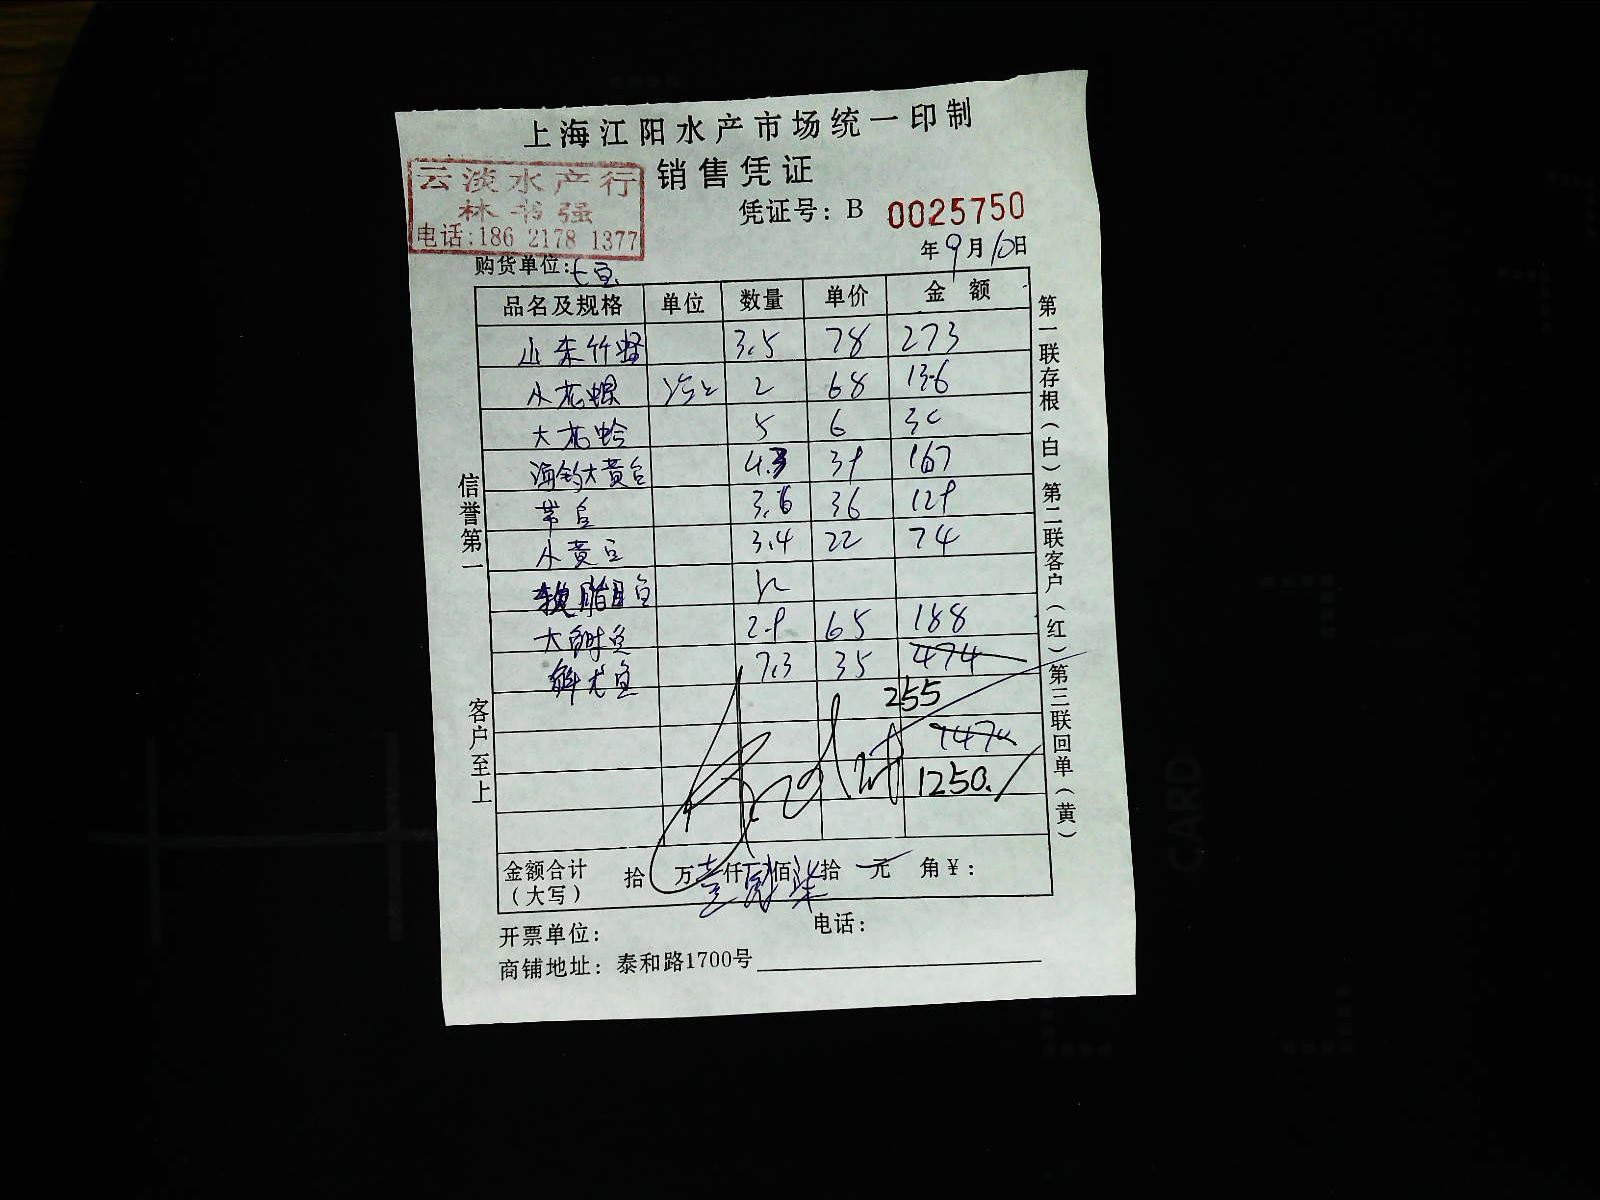 上海江阳水产市场统一印制
销售凭证
云淡水产行
林书强
电话:186 2178 1377
凭证号: B 0025750
年9月10日
购货单位:
品名及规格 单位 数量 单价 金 额
山东竹蛏 3.5 78 273
小花螺 2 68 136
大花蛤 5 6 30
海钓大黄鱼 4.3 39 167
带鱼 3.6 36 129
小黄鱼 3.4 22 74
大鲥鱼 2.9 65 188
7.3 35 474
255
1474
1250.
金额合计 拾 万壹仟贰佰柒拾 元 角¥:
(大写)
开票单位: 电话:
商铺地址: 泰和路1700号
信誉第一
客户至上
第一联存根(白)第二联客户(红)第三联回单(黄)
CARD